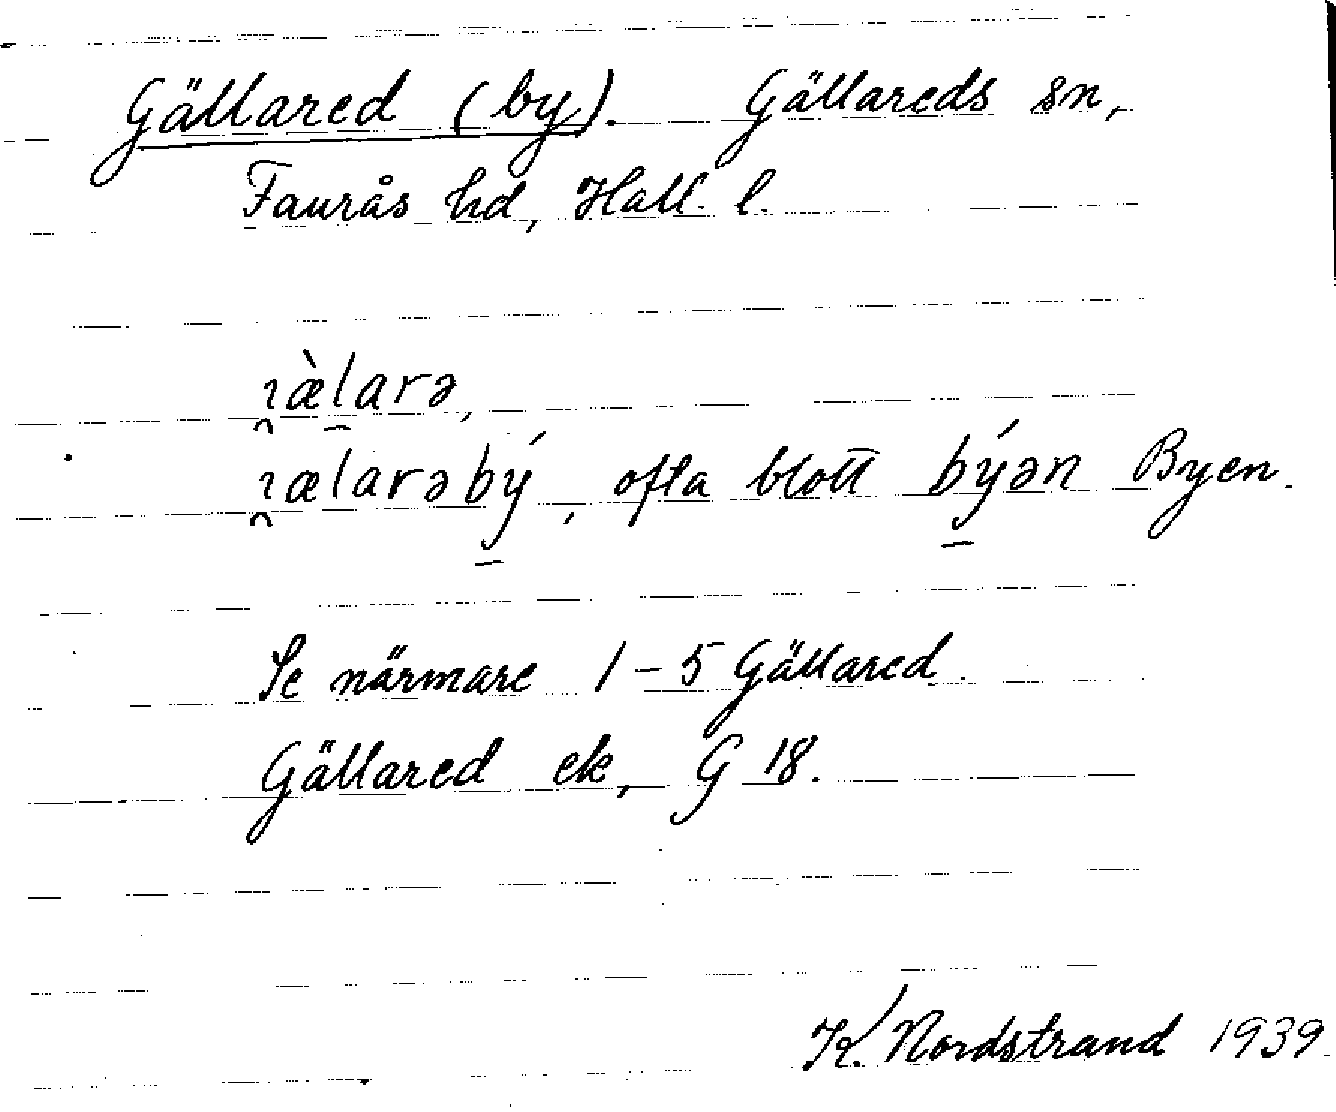 Gällared (by). Gällareds sn,
Faurås hd, Hall. l.
ɿæ̀larə,
ɿælarəbý, ofta blott býən Byen.
Se närmare 1-5 Gällared.
Gällared ek, G 18.
K. Nordstrand 1939